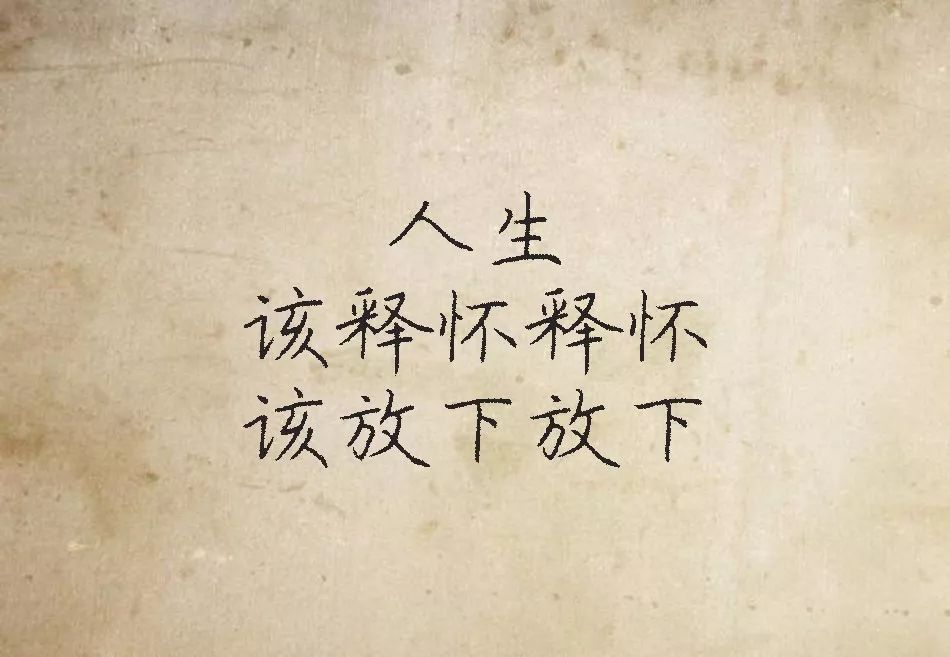 人生
该释怀释怀
该放下放下